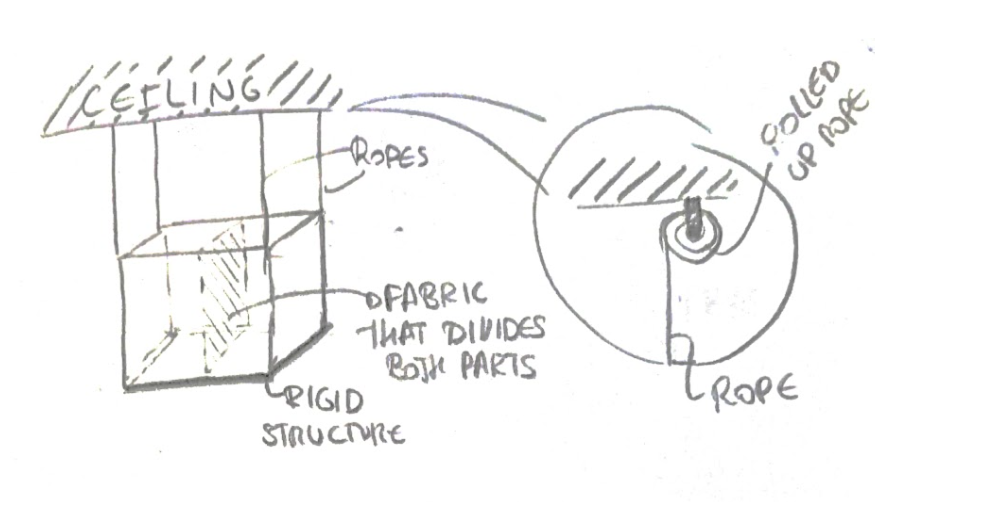 CEILING
ROPES
FABRIC
THAT DIVIDES
BOTH PARTS
RIGID
STRUCTURE
ROLLED
UP ROPE
ROPE